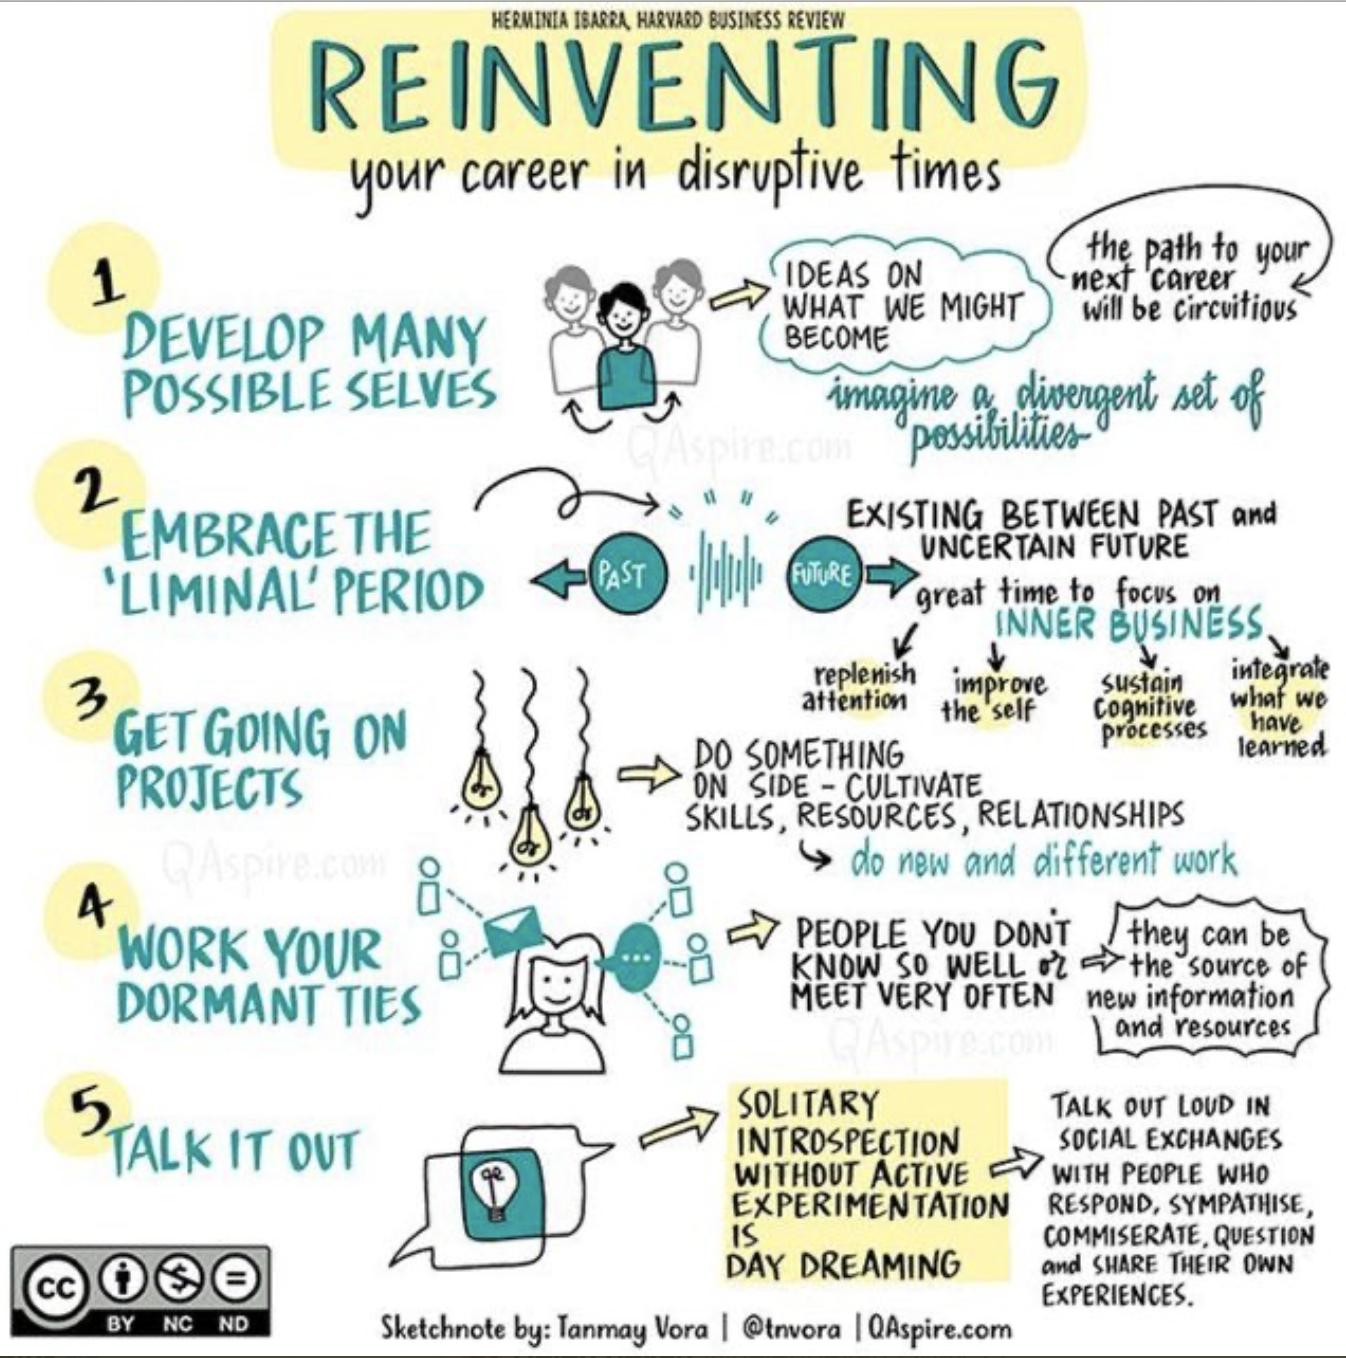 HERMINIA IBARRA, HARVARD BUSINESS REVIEW
REINVENTING
your career in disruptive times
1
DEVELOP MANY
POSSIBLE SELVES
IDEAS ON
WHAT WE MIGHT
BECOME
the path to your
next career
will be circuitious
imagine a divergent set of
possibilities
QAspire.com
2
EMBRACE THE
'LIMINAL' PERIOD
PAST
FUTURE
EXISTING BETWEEN PAST and
UNCERTAIN FUTURE
great time to focus on
INNER BUSINESS
replenish
attention
improve
the self
sustain
Cognitive
processes
integrate
what we
have
learned
3
GET GOING ON
PROJECTS
DO SOMETHING
ON SIDE - CULTIVATE
SKILLS, RESOURCES, RELATIONSHIPS
do new and different work
QAspire.com
4
WORK YOUR
DORMANT TIES
PEOPLE YOU DON'T
KNOW SO WELL or
MEET VERY OFTEN
they can be
the source of
new information
and resources
QAspire.com
5
TALK IT OUT
SOLITARY
INTROSPECTION
WITHOUT ACTIVE
EXPERIMENTATION
IS
DAY DREAMING
TALK OUT LOUD IN
SOCIAL EXCHANGES
WITH PEOPLE WHO
RESPOND, SYMPATHISE,
COMMISERATE, QUESTION
and SHARE THEIR OWN
EXPERIENCES.
cc
BY NC ND
Sketchnote by: Tanmay Vora | @tnvora | QAspire.com